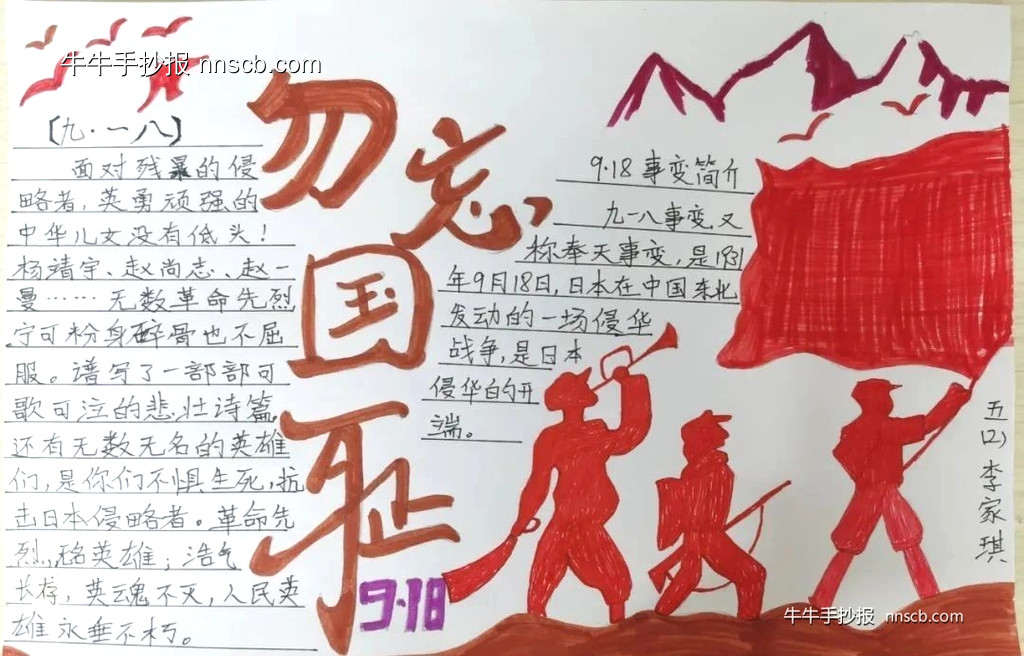 牛牛手抄报 nnscb.com
【九·一八】
面对残暴的侵
略者，英勇顽强的
中华儿女没有低头！
杨靖宇、赵尚志、赵一
曼……无数革命先烈
宁可粉身碎骨也不屈
服。谱写了一部部可
歌可泣的悲壮诗篇，
还有无数无名的英雄
们，是你们不惧生死，抗
击日本侵略者。革命先
烈，英雄；浩气
长存，英魂不灭，人民英
雄永垂不朽。
勿忘
国耻
9·18
9·18事变简介
九一八事变又
称奉天事变，是1931
年9月18日，日本在中国东北
发动的一场侵华
战争，是日本
侵华的开
端。
五(2)李家琪
牛牛手抄报 nnscb.com